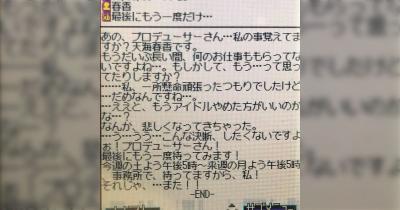 春香
最後にもう一度だけ…
あの、プロデューサーさん…私の事覚えてま
すか？天海春香です。
もうだいぶ長い間、何のお仕事ももらってな
いですよね…。もしかして、もう…って思っ
てたりしますか？
……私、一所懸命頑張ったつもりでしたけど
…だめなんですね…。
…ええと、もうアイドルやめた方がいいのか
な…？
なんか、悲しくなってきちゃった。
…う…うう…こんな決断、したくないですよ
ぉ！プロデューサーさん！
最後にもう一度待ってみます！
今週の土よう午後5時～来週の月よう午後5時
事務所で、待ってますから、！
それじゃ、…また！！
-END-
サブメニュー